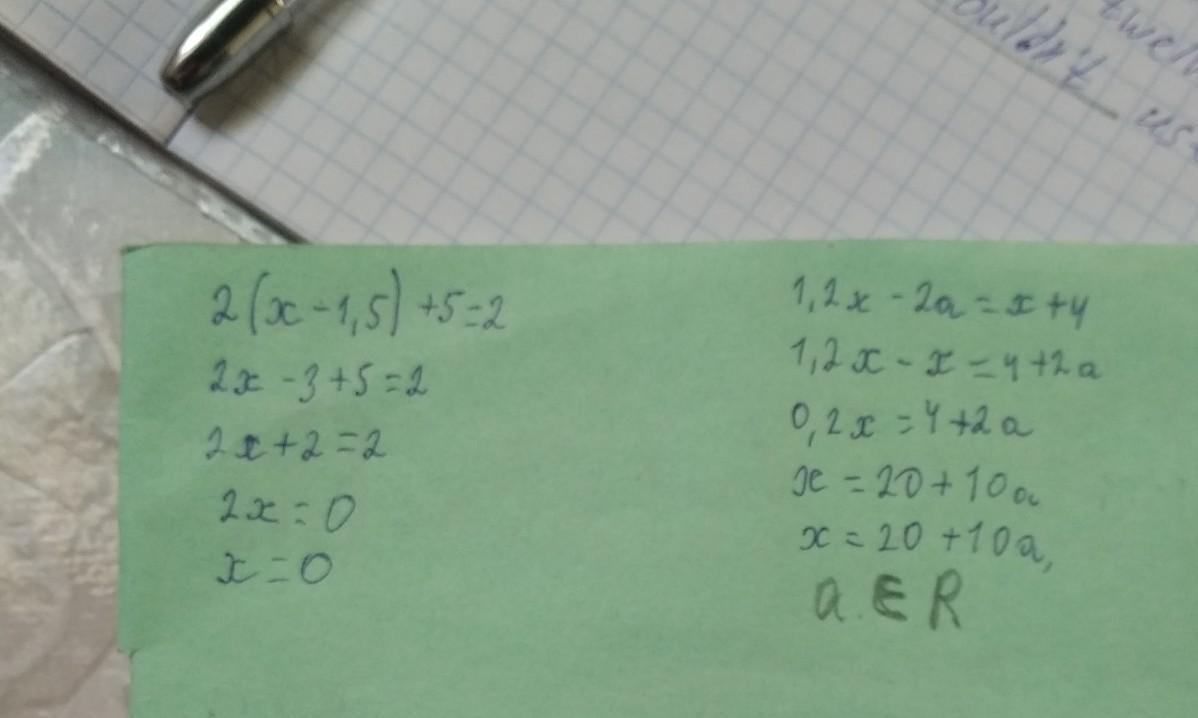 twelv
ouldn't
us
2(x-1,5)+5=2
2x-3+5=2
2x+2=2
2x=0
x=0
1,2x-2a=x+4
1,2x-x=4+2a
0,2x=4+2a
x=20+10a
x=20+10a,
a∈R